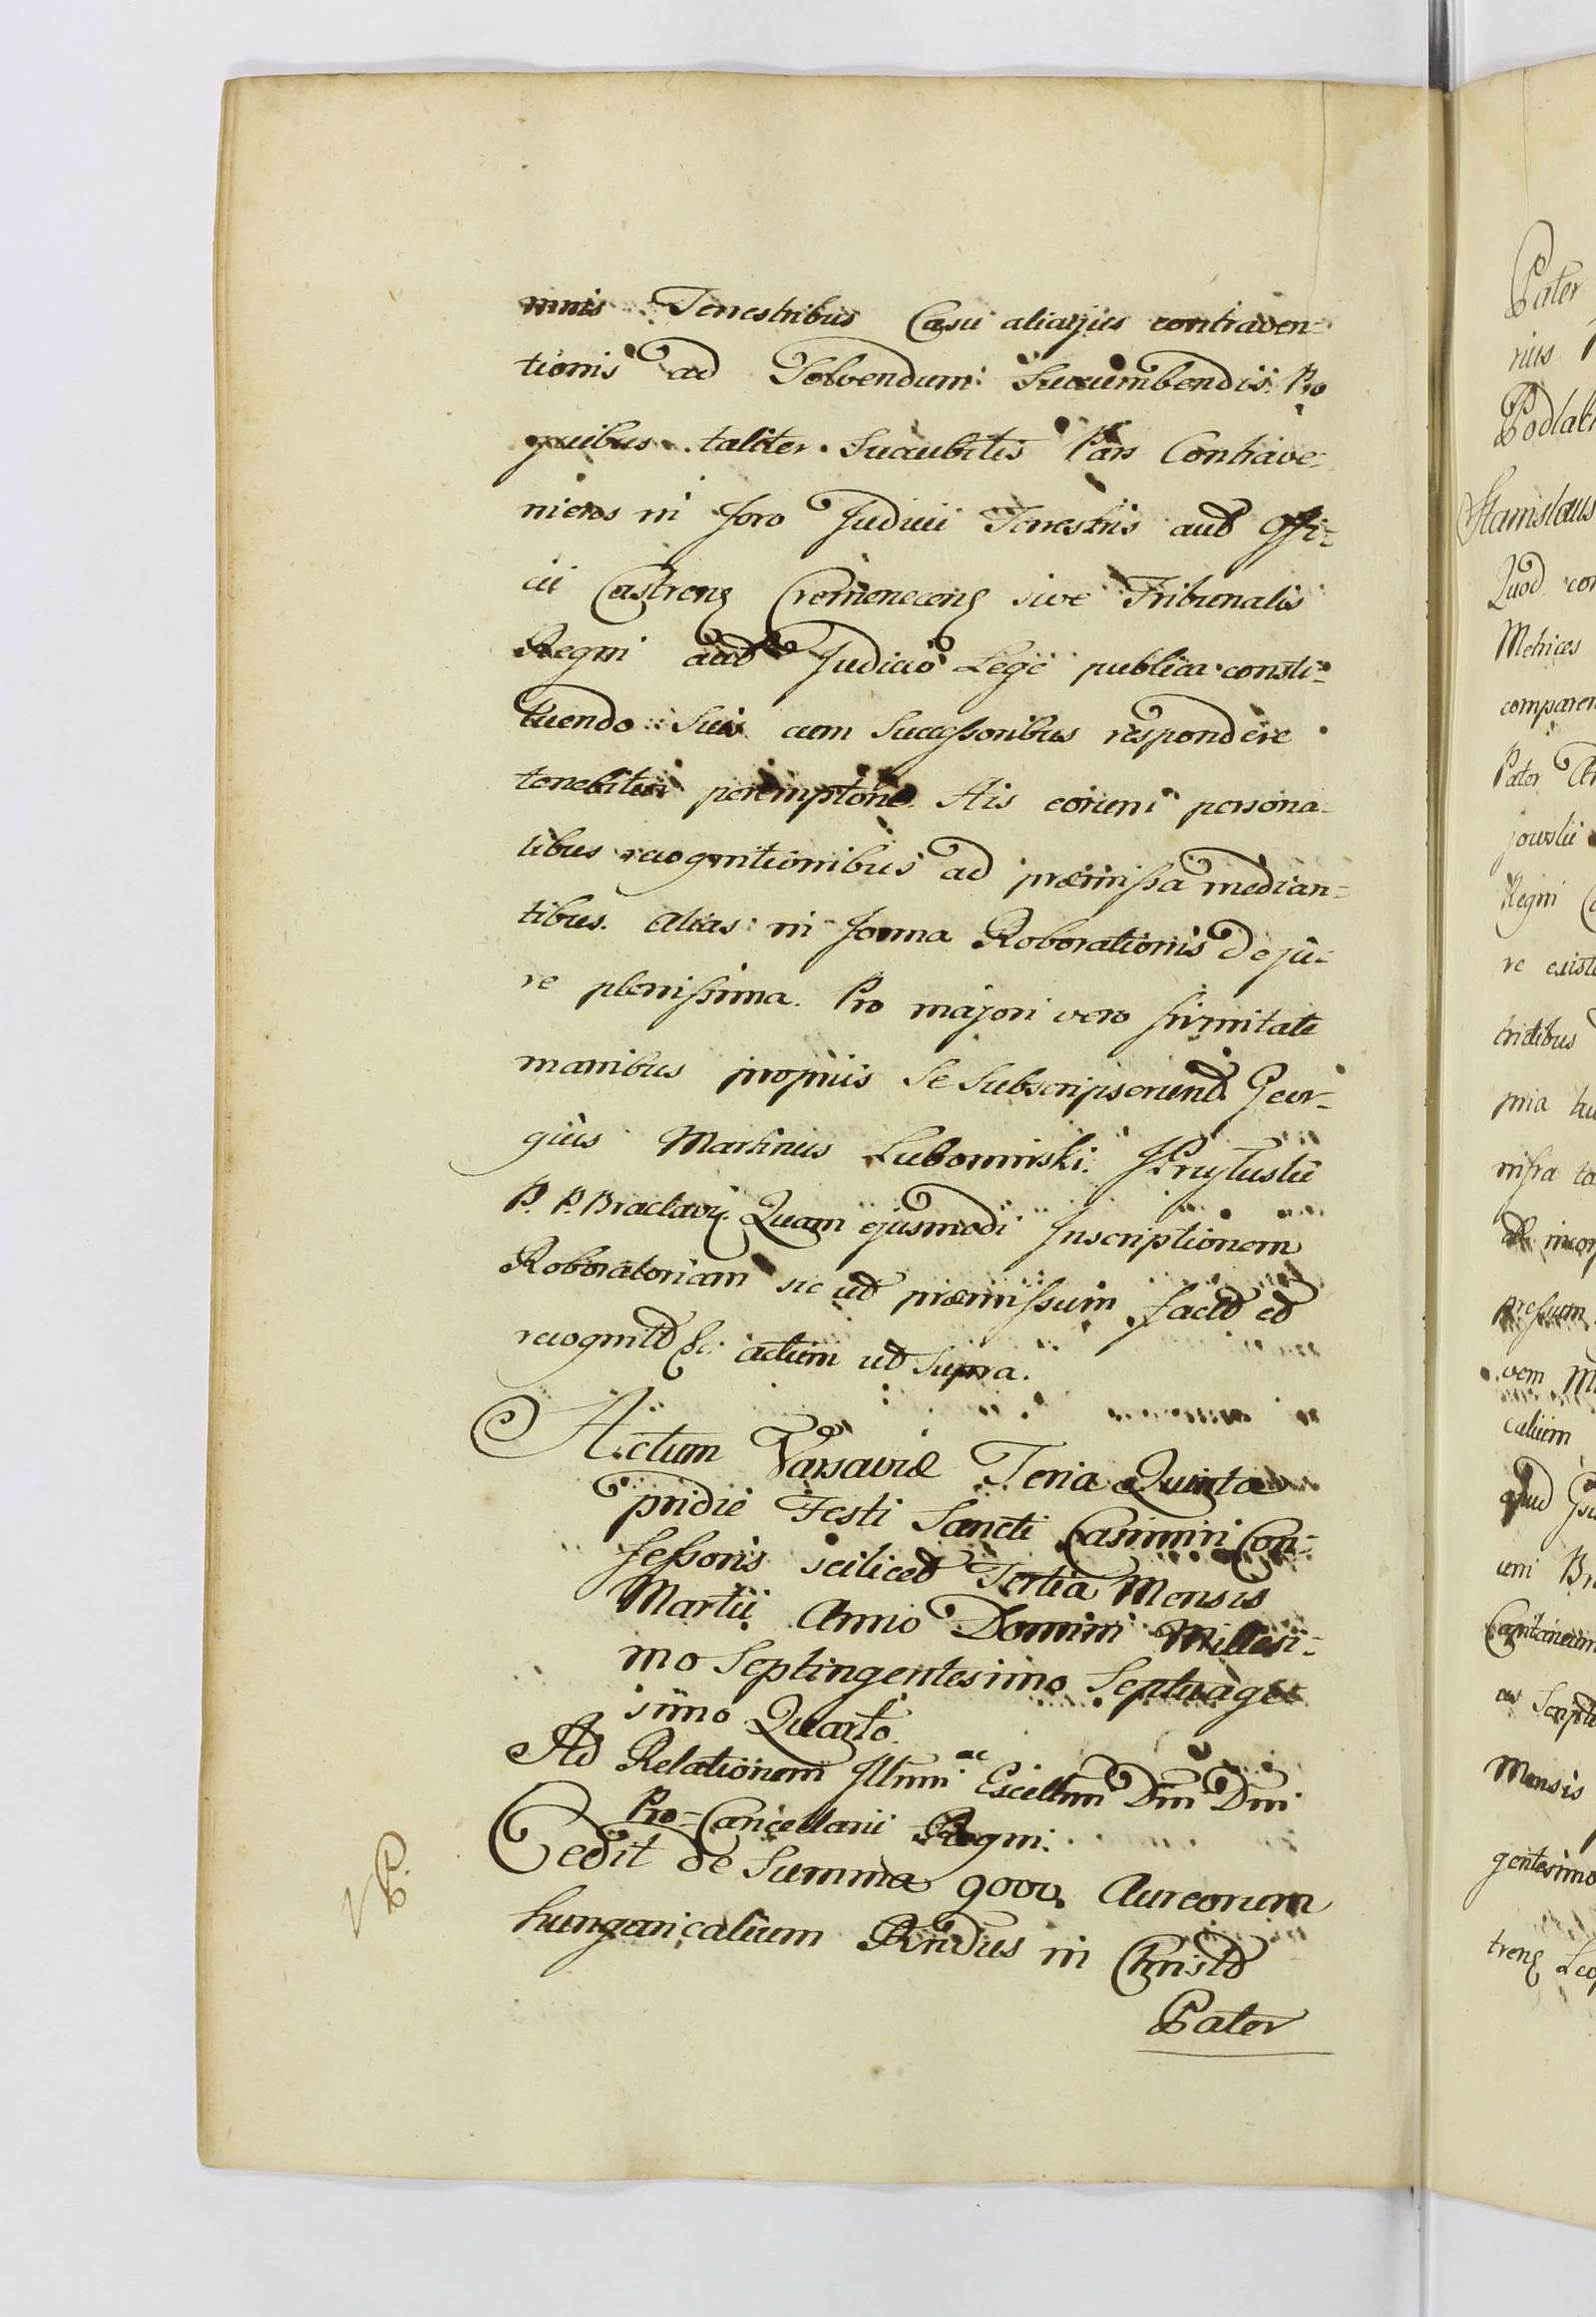 mnis Terrestribus Casu alicujus contraven-
tionis ad Solvendum Succumbendis. Pro
quibus taliter Succubitis Pars Contrave-
niens in foro Judicii Terrestris aut Offi-
cii Castreng Cremeneceng sive Tribunalis
Regni aut Judicio Lege publica consti-
tuendo Suis cum Successoribus respondere
tenebitur peremptorie. His eorum persona-
libus recognitionibus ad præmissa median-
tibus. Alias in forma Roborationis de ju-
re plenissima. Pro majori vero firmitate
manibus propriis Se Subscripserunt. Geor-
gius Martinus Lubomirski.
P. P. Braclavg. Quam ejusmodi Inscriptionem
Roboratoriam sic ut præmissum fact et
recognit &c: actum ut Supra.
Actum Varsaviæ Feria Quinta
pridie Festi Sancti Casimiri Con-
fessoris scilicet Tertia Mensis
Martii Anno Domini Millesi-
mo Septingentesimo Septuage
simo Quarto.
Ad Relationem Illmi ac Excellmi Dni Dni
Pro-Cancellarii Regni.
Cedit de Summa 9000. Aureorum
hungaricalium Rndus in Christo
Pater
Pater
rius
Podlac
Stanislaus
Quod con
Metrices
comparen
Pater
Regni
re existe
pria
infra ta
pressum
vem
Capitaneum
Mensis
gentesimo
treng Leop